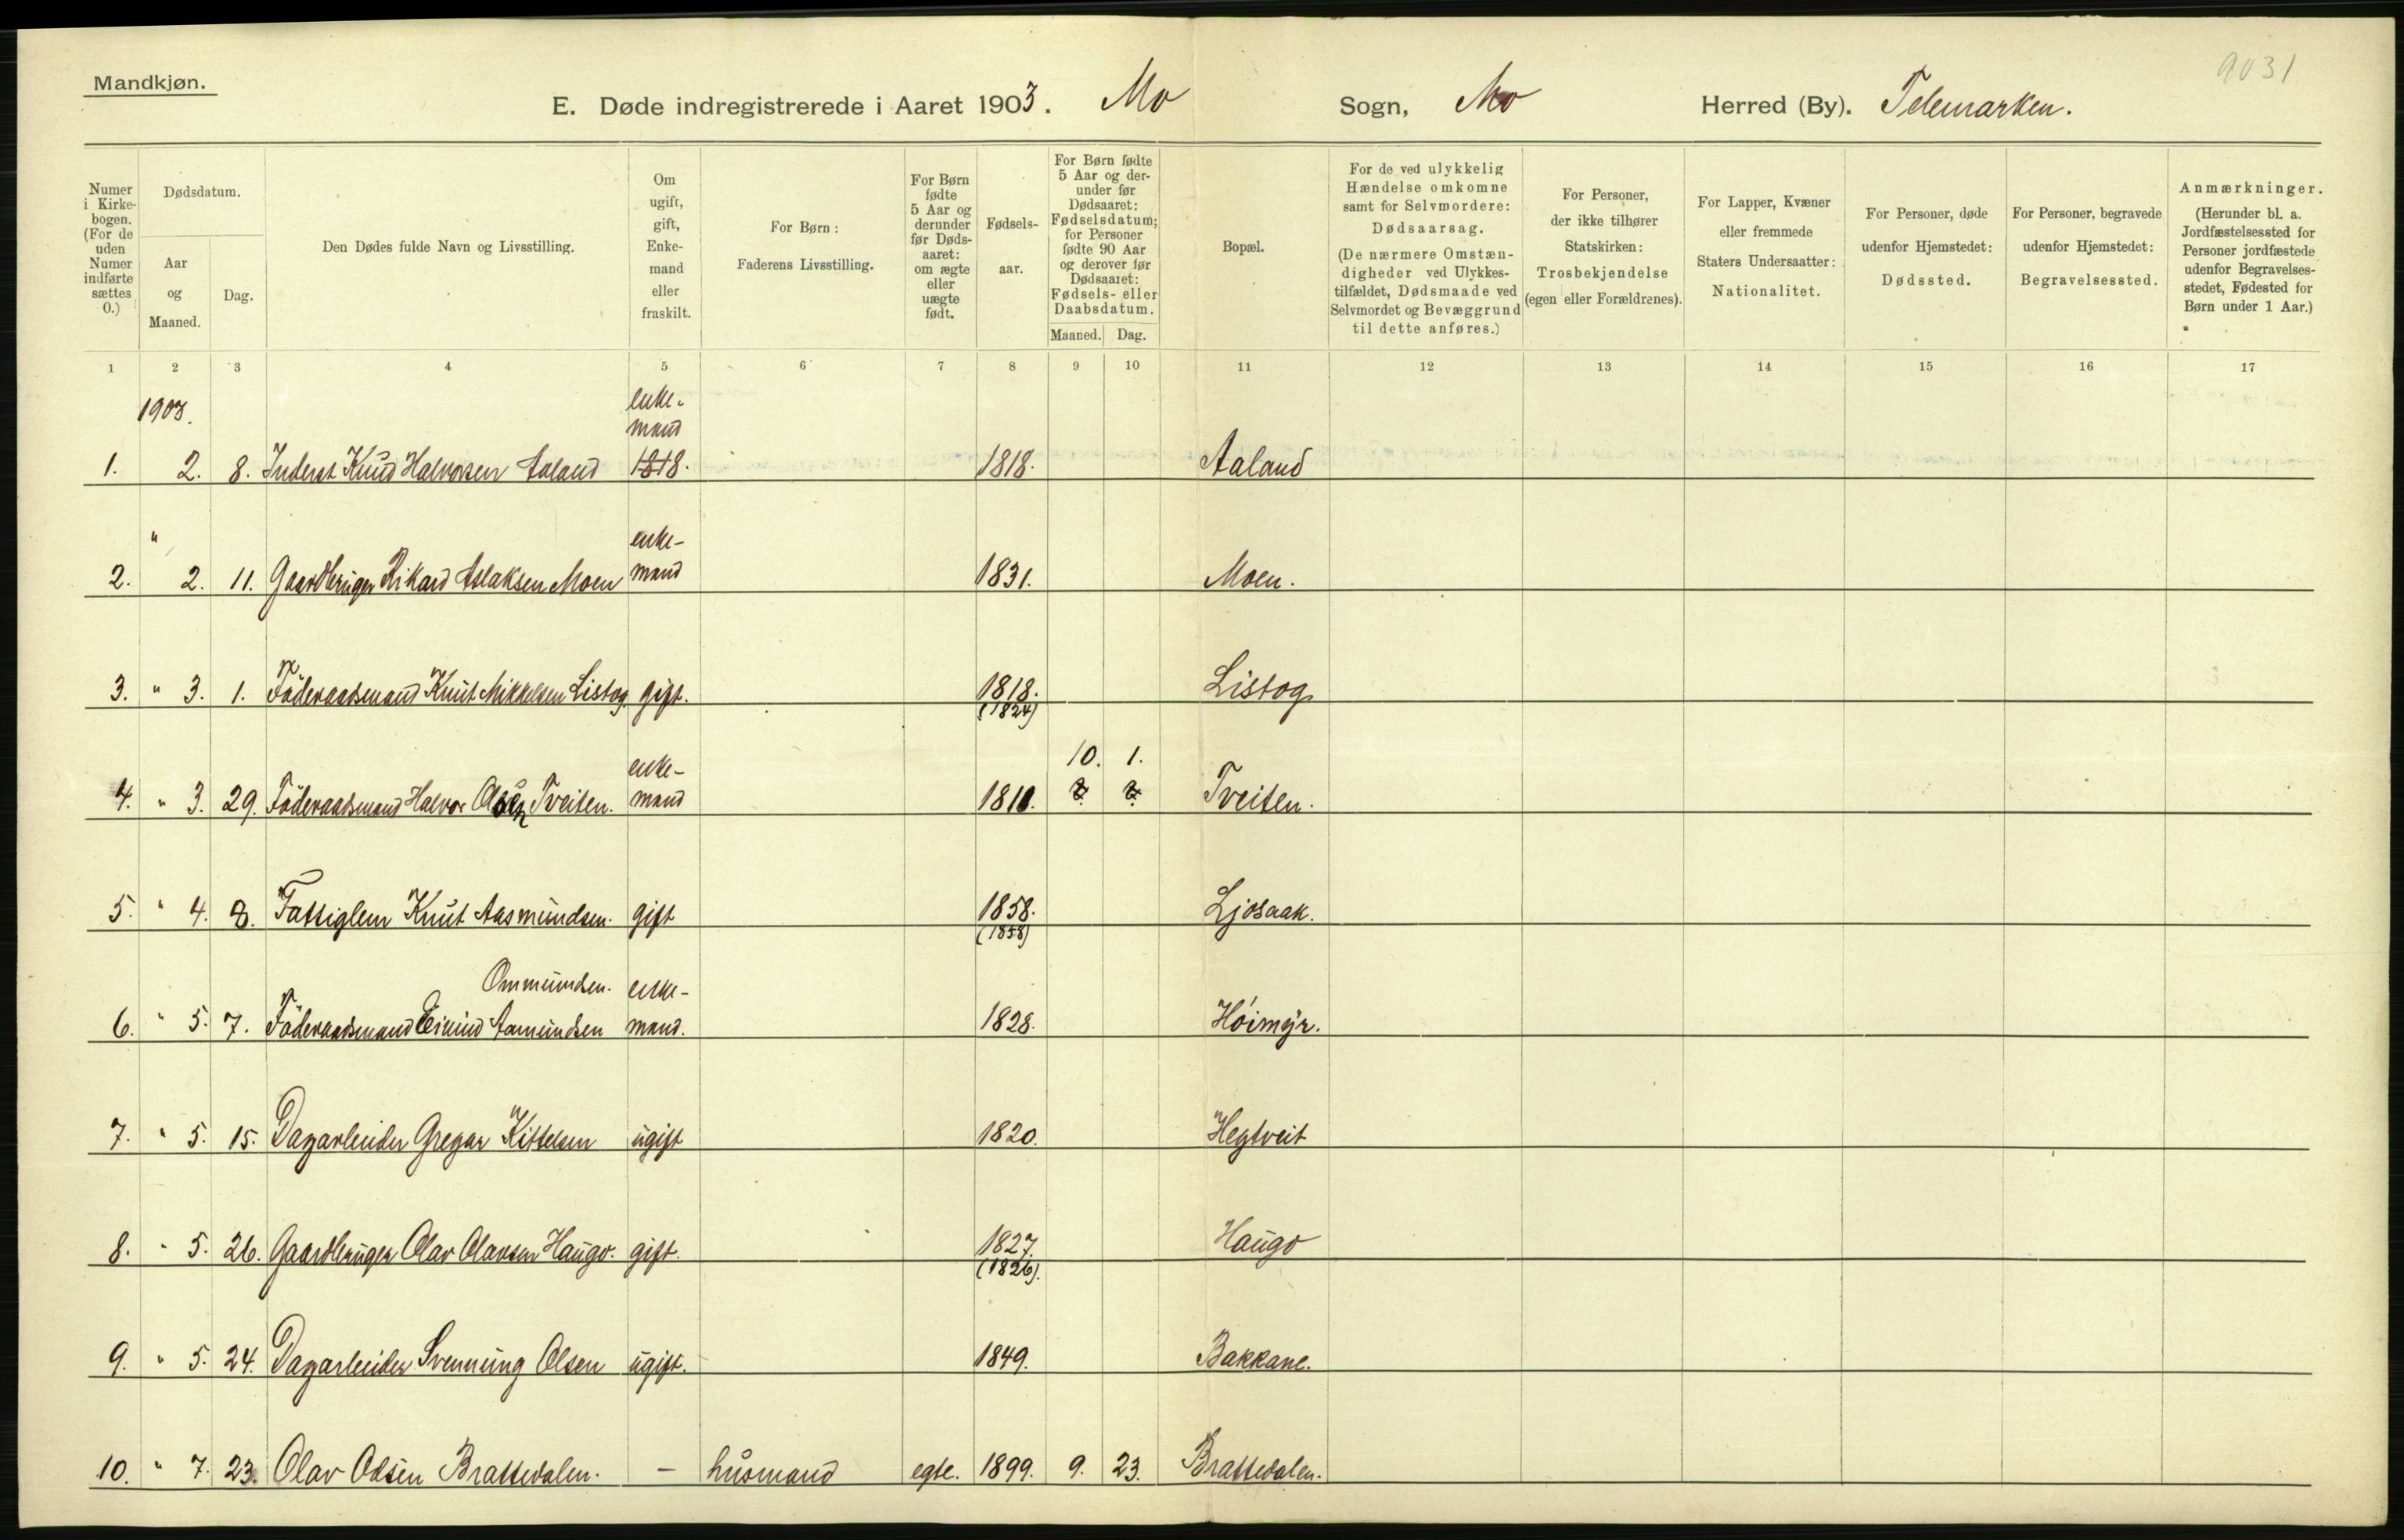 9031
Mandkjøn.
E. Døde indregistrerede i Aaret 1903. Mo Sogn, Mo Herred (By). Telemarken.
Numer i Kirkebogen. (For de uden Numer indførte sættes 0.)
Dødsdatum.
Aar og Maaned.
Dag.
Den Dødes fulde Navn og Livsstilling.
Om ugift, gift, Enkemand eller fraskilt.
For Børn: Faderens Livsstilling.
For Børn fødte 5 Aar og derunder før Dødsaaret: om ægte eller uægte født.
Fødselsaar.
For Børn fødte 5 Aar og derunder før Dødsaaret: Fødselsdatum; for Personer fødte 90 Aar og derover før Dødsaaret: Fødsels- eller Daabsdatum.
Maaned. Dag.
Bopæl.
For de ved ulykkelig Hændelse omkomne samt for Selvmordere: Dødsaarsag. (De nærmere Omstændigheder ved Ulykkestilfældet, Dødsmaade ved Selvmordet og Bevæggrund til dette anføres.)
For Personer, der ikke tilhører Statskirken: Trosbekjendelse (egen eller Forældrenes).
For Lapper, Kvæner eller fremmede Staters Undersaatter: Nationalitet.
For Personer, døde udenfor Hjemstedet: Dødssted.
For Personer, begravede udenfor Hjemstedet: Begravelsessted.
Anmærkninger. (Herunder bl. a. Jordfæstelsessted for Personer jordfæstede udenfor Begravelsesstedet, Fødested for Børn under 1 Aar.)
1 2 3 4 5 6 7 8 9 10 11 12 13 14 15 16 17
1903. enkemand
1. 2. 8. Inderst Knud Halvorsen Aaland 1818. 1818. Aaland
" enke-
2. 2. 11. Gaardbruger Rikard Aslaksen Moen mand 1831. Moen.
3. " 3. 1. Föderaadsmand Knut Mikkelsen Listog gift. 1818. Listog
(1824)
enke- 10. 1.
4. " 3. 29. Föderaadsmand Halvor Olsen Tveiten. mand 1810. ? ? Tveiten.
5. " 4. 8. Fattiglem Knut Aasmundsen. gift 1858. Ljosaak.
(1858)
Ommundsen. enke-
6. " 5. 7. Föderaadsmand Eivind Aamundsen mand. 1828. Höimyr.
7. " 5. 15. Dagarbeider Gregar Kittelsen ugift 1820. Hegtveit
8. " 5. 26. Gaardbruger Olav Olavsen Haugo. gift. 1827. Haugo
(1826).
9. " 5. 24. Dagarbeider Svennung Olsen ugift. 1849. Bakkane.
10. " 7. 23. Olav Olsen Brattedalen. — husmand egte. 1899. 9. 23. Brattedalen.